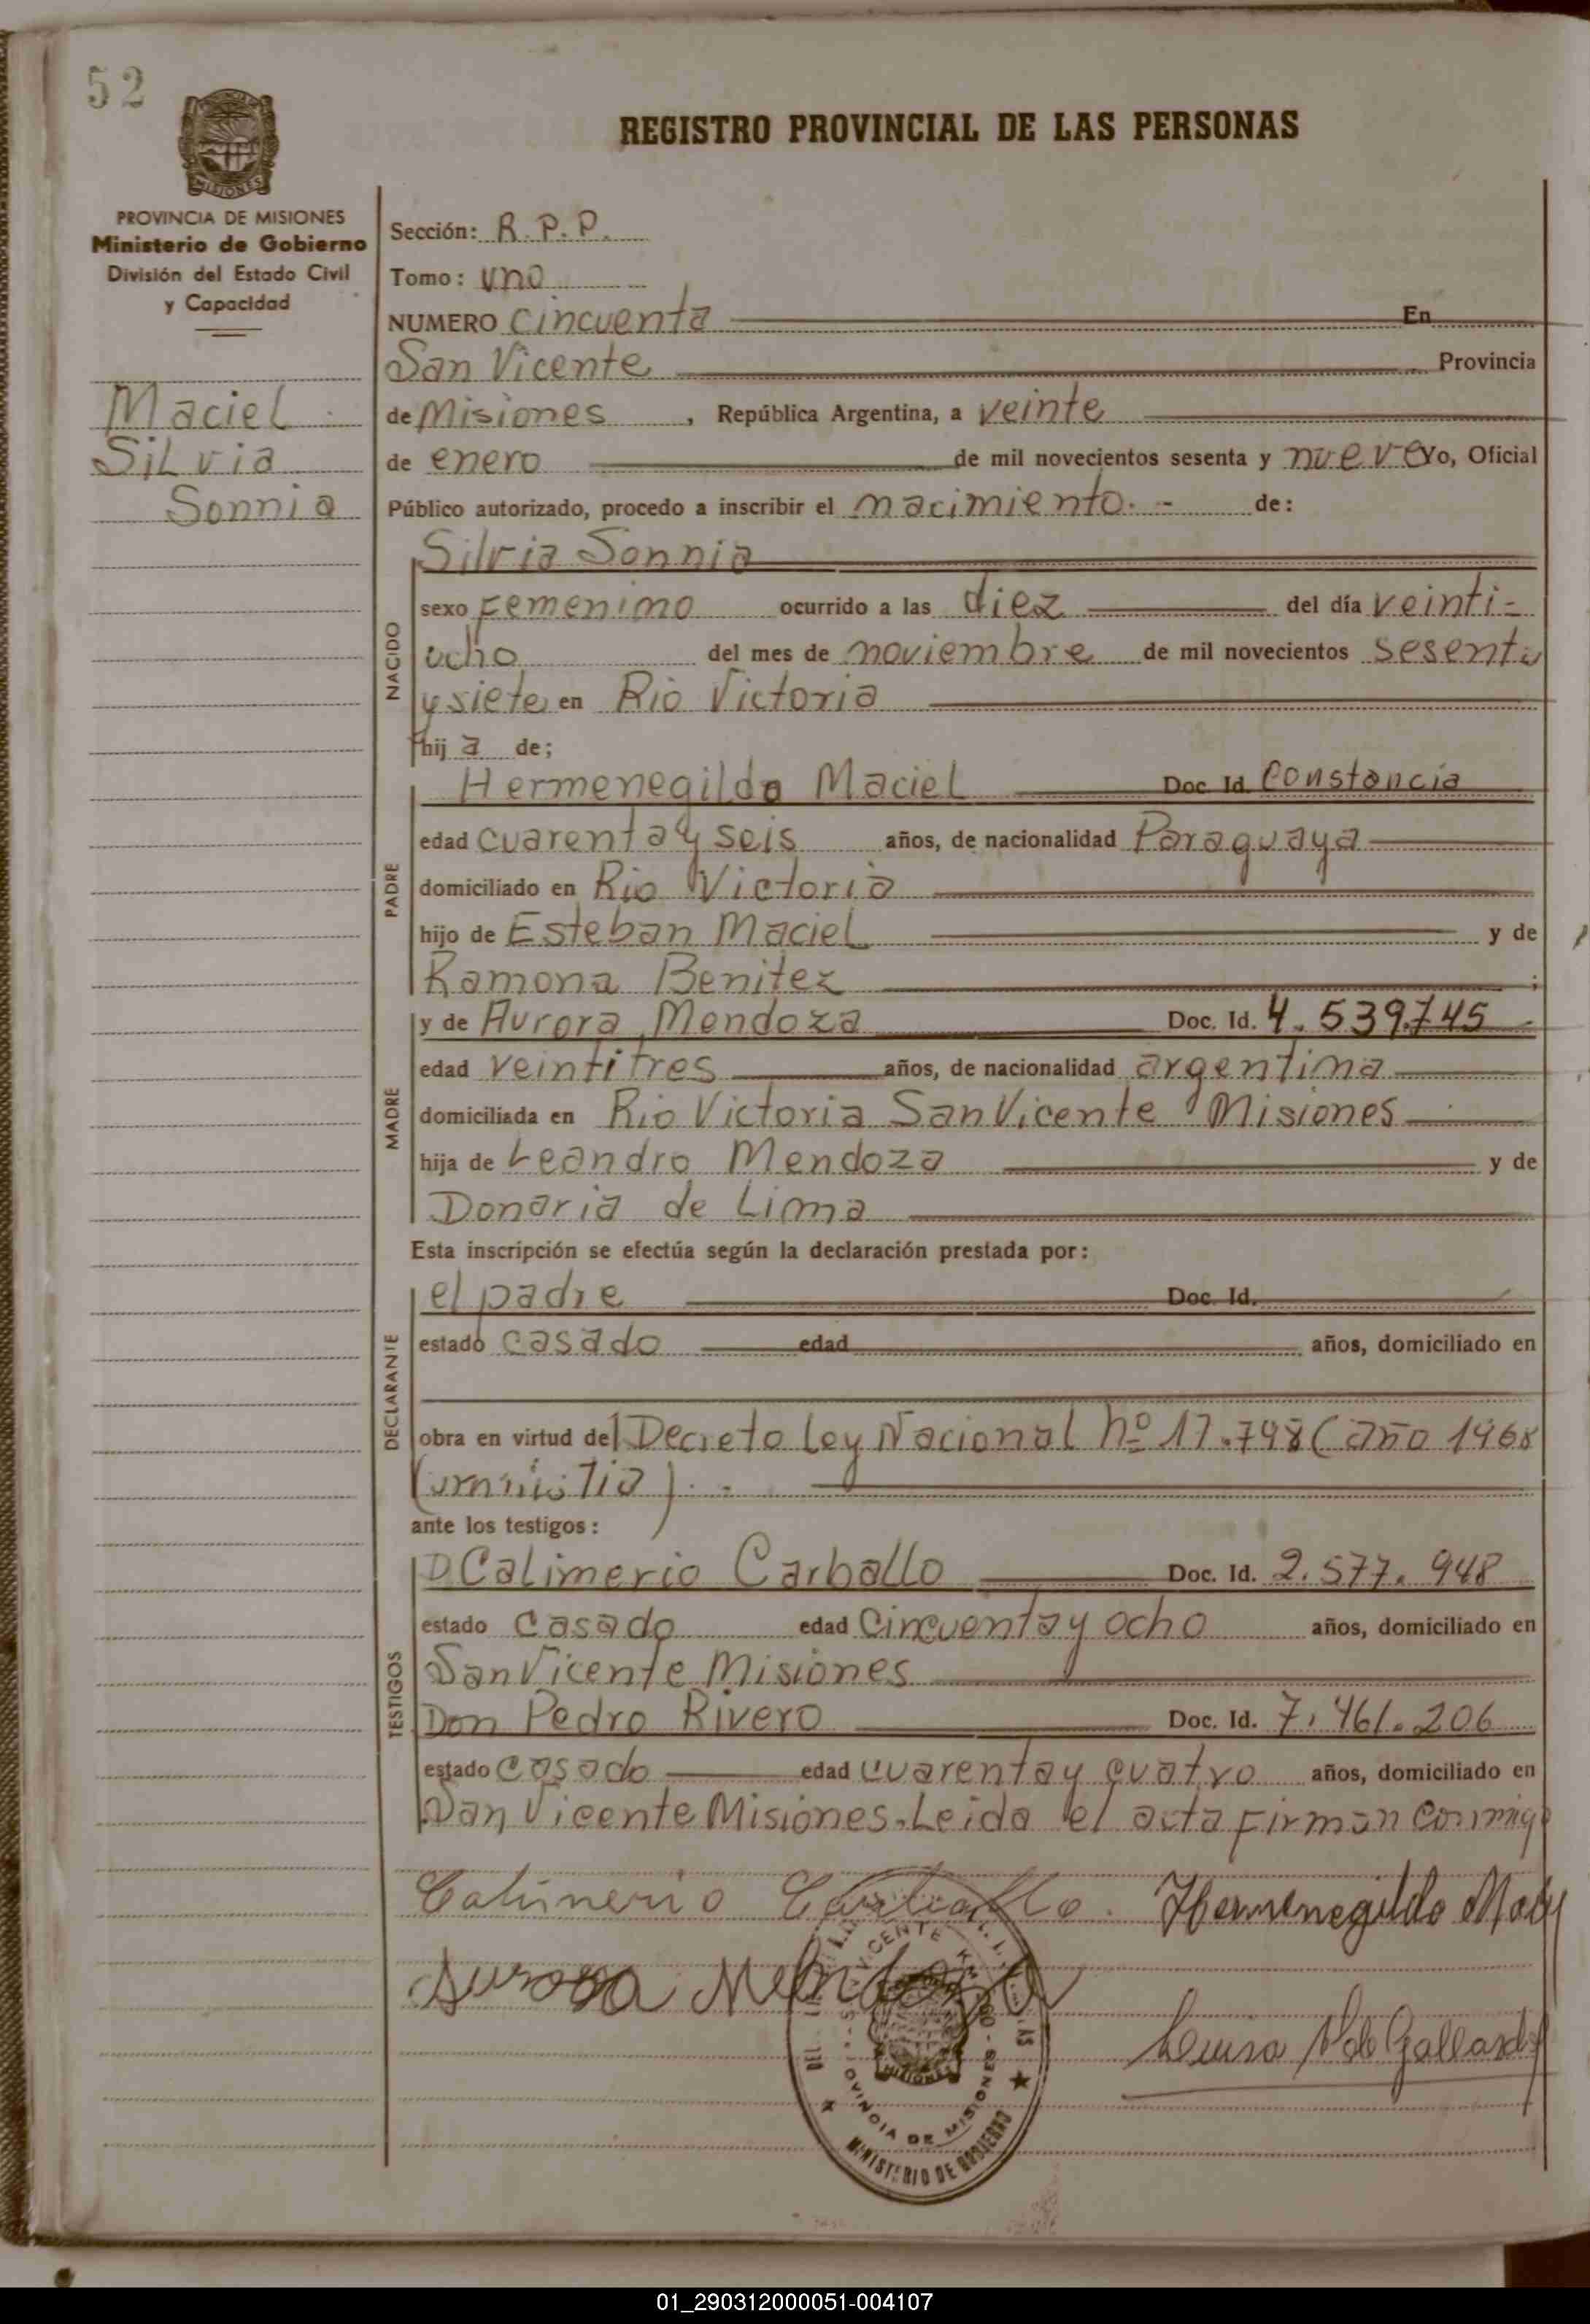 52
REGISTRO PROVINCIAL DE LAS PERSONAS
PROVINCIA DE MISIONES
Ministerio de Gobierno
División del Estado Civil
y Capacidad
Maciel
SiLvia
Sonnia
Sección: R.P.P.
Tomo: uno
NUMERO cincuenta En
San Vicente Provincia
de Misiones, República Argentina, a veinte
de enero de mil novecientos sesenta y nueve Yo, Oficial
Público autorizado, procedo a inscribir el nacimiento.- de:
Silvia Sonnia
NACIDO
sexo Femenino ocurrido a las diez del día veinti-
ocho del mes de noviembre de mil novecientos sesenta
y siete en Rio Victoria
hij a de;
PADRE
Hermenegildo Maciel Doc. Id. Constancia
edad cuarenta y seis años, de nacionalidad Paraguaya
domiciliado en Rio Victoria
hijo de Esteban Maciel y de
Ramona Benitez ;
MADRE
y de Aurora Mendoza Doc. Id. 4.539.745
edad veintitres años, de nacionalidad argentina
domiciliada en Rio Victoria San Vicente Misiones
hija de Leandro Mendoza y de
Donaria de Lima
Esta inscripción se efectúa según la declaración prestada por:
DECLARANTE
el padre Doc. Id.
estado casado edad años, domiciliado en
obra en virtud del Decreto Ley Nacional nº 17.798 (año 1968
(amnistia).-
ante los testigos:
TESTIGOS
D Calimerio Carballo Doc. Id. 2.577.948
estado casado edad cincuenta y ocho años, domiciliado en
San Vicente Misiones
Don Pedro Rivero Doc. Id. 7.461.206
estado casado edad cuarenta y cuatro años, domiciliado en
San Vicente Misiones. Leida el acta Firman conmigo
Calimerio Carballo. Hermenegildo
Aurora Mendoza
Luisa de Gallardo
VICENTE
PROVINCIA DE MISIONES
MINISTERIO DE GOBIERNO
MISIONES
01_290312000051-004107